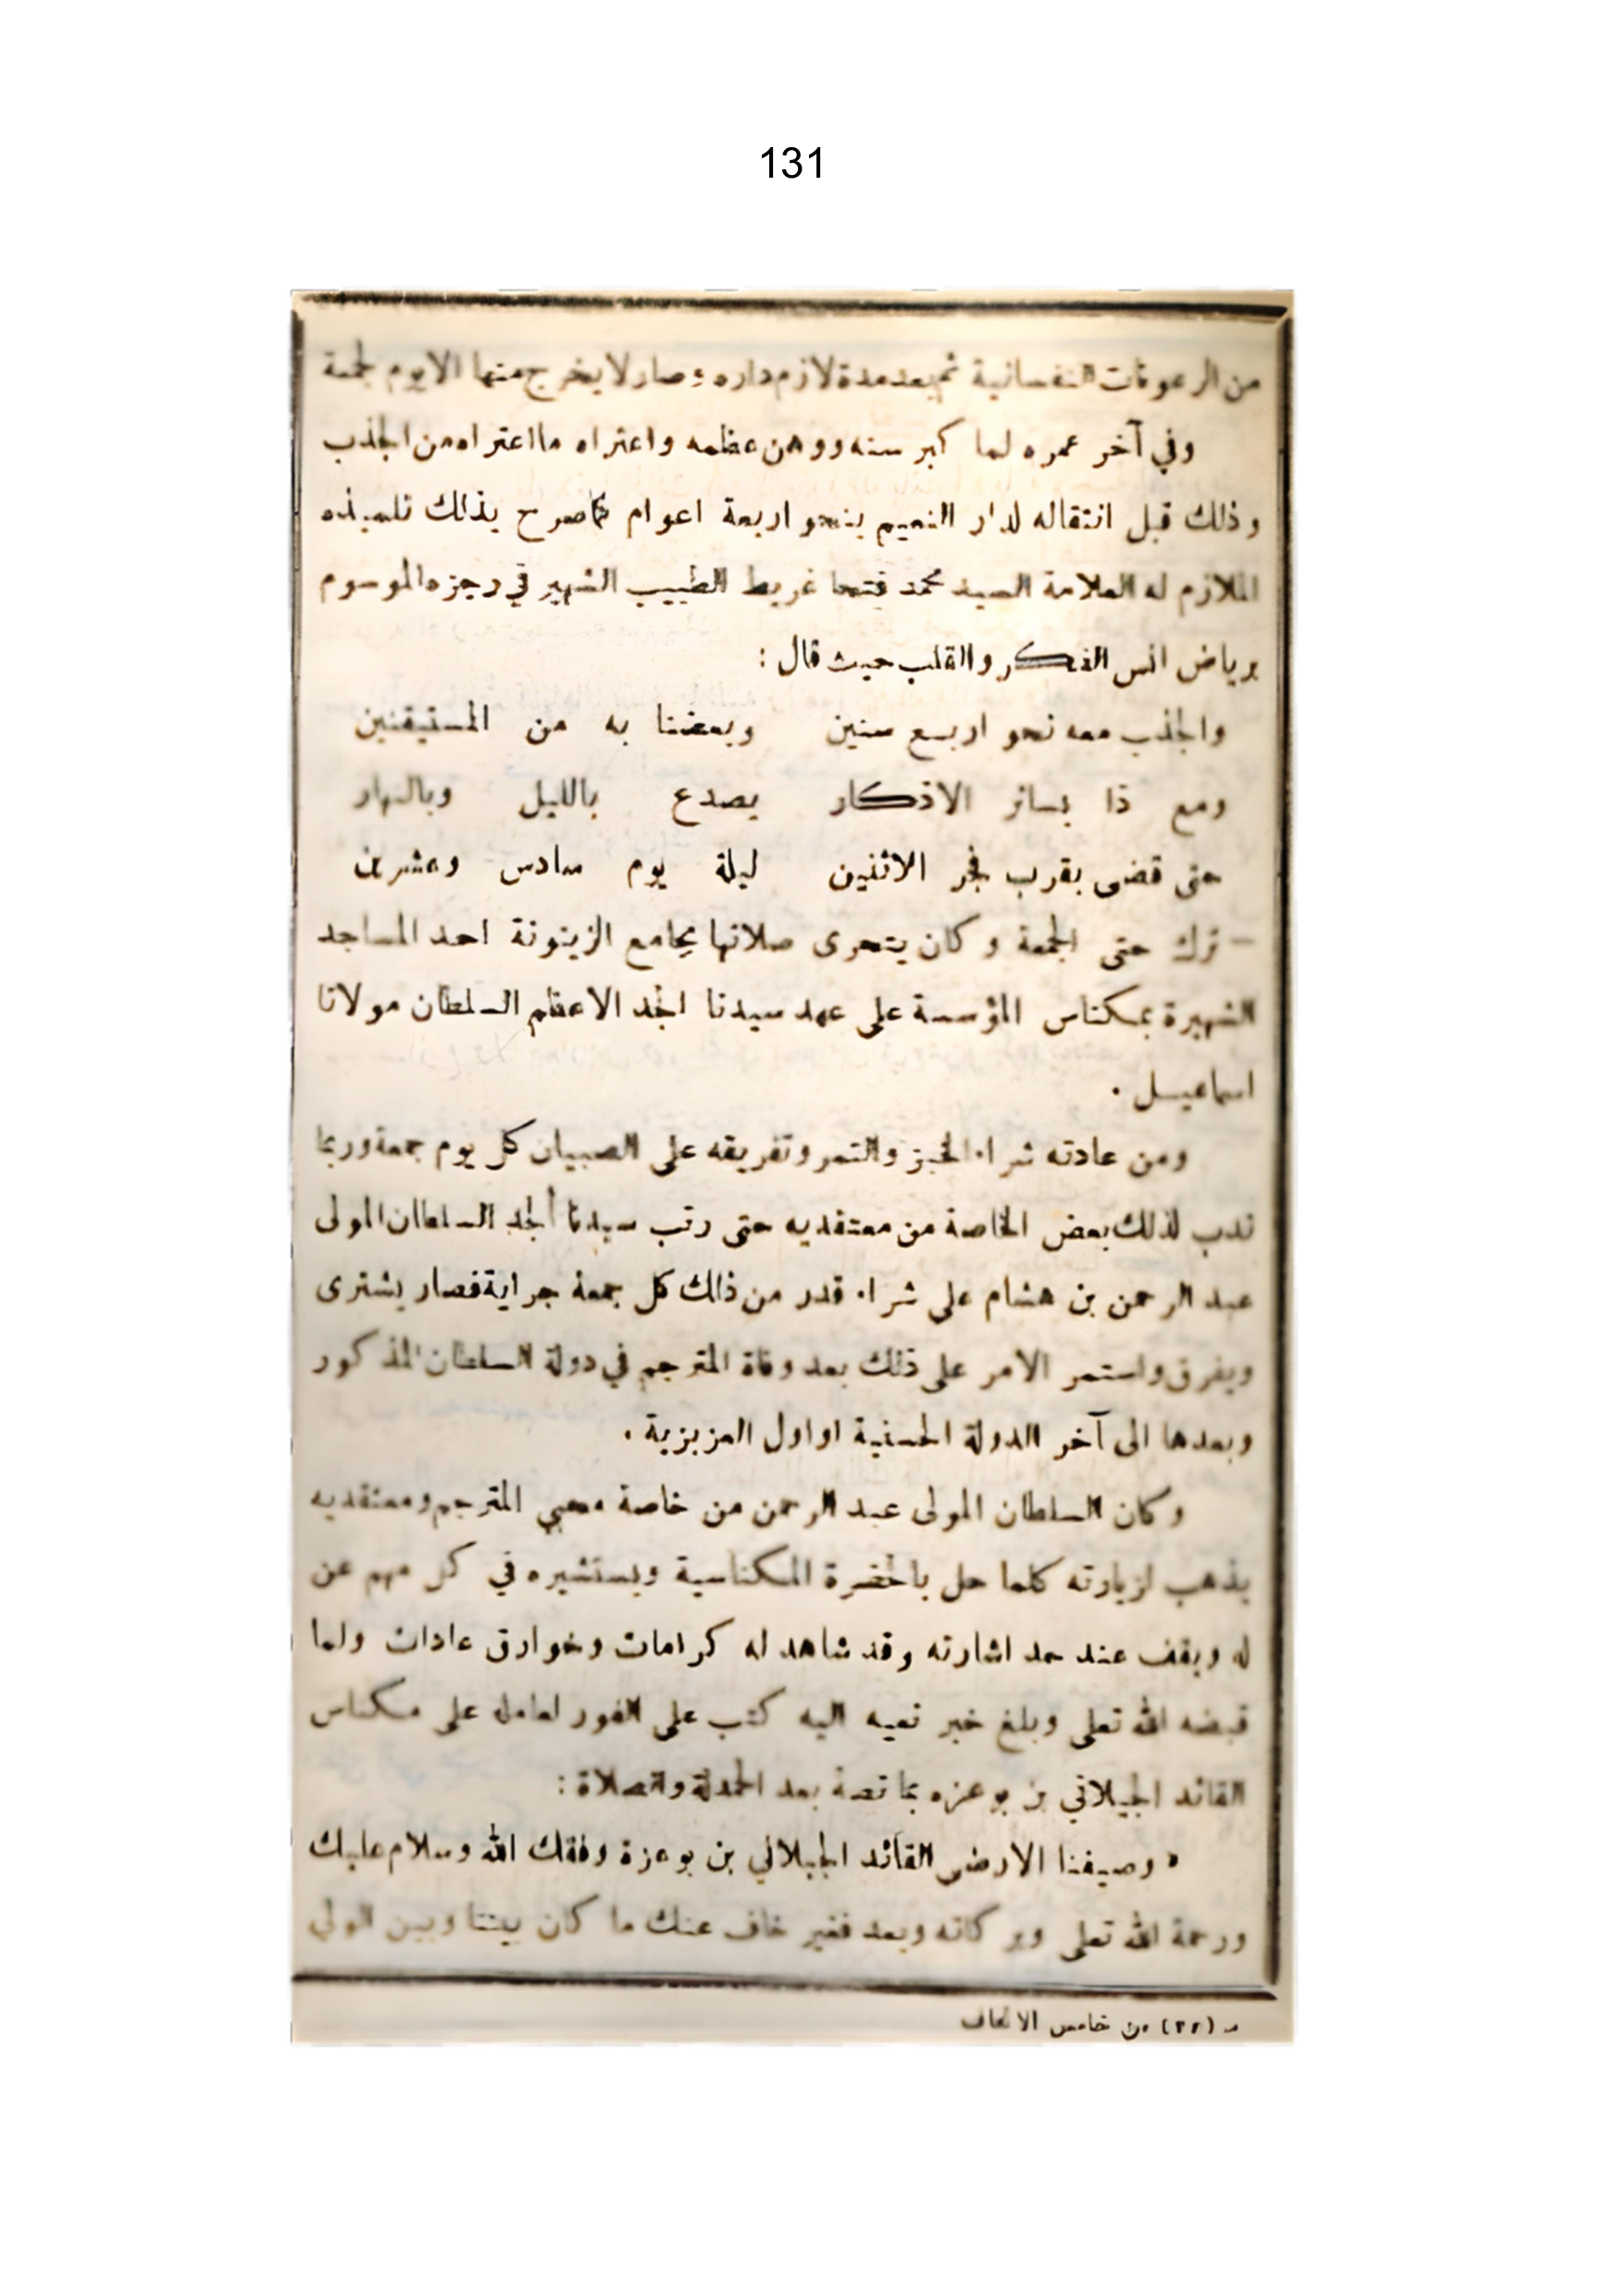 131
من الرعونات النفسانية ثم بعد مدة لازم داره وصار لا يخرج منها الا يوم الجمعة
وفي آخر عمره لما كبر سنه ووهن عظمه واعتراه ما اعتراه من الجذب
وذلك قبل انتقاله لدار النعيم بنحو اربعة اعوام كما صرح بذلك تلميذه
الملازم له العلامة السيد محمد فتحا غريط الطبيب الشهير في رجزه الموسوم
برياض انس الفكر والقلب حيث قال :
والجذب معه نحو اربع سنين وبعضنا به من المستيقنين
ومع ذا بسائر الاذكار يصدع بالليل وبالنهار
حتى قضى بقرب فجر الاثنين ليلة يوم سادس وعشرين
– ترك حتى الجمعة وكان يتحرى صلاتها بجامع الزيتونة احد المساجد
الشهيرة بمكناس المؤسسة على عهد سيدنا الجد الاعظم السلطان مولانا
اسماعيل .
ومن عادته شراء الخبز والتمر وتفريقه على الصبيان كل يوم جمعة وربما
ندب لذلك بعض الخاصة من معتقديه حتى رتب سيدنا الجد السلطان المولى
عبد الرحمن بن هشام على شراء قدر من ذلك كل جمعة جراية فصار يشترى
ويفرق واستمر الامر على ذلك بعد وفاة المترجم في دولة السلطان المذكور
وبعدها الى آخر الدولة الحسنية اوائل العزيزية .
وكان السلطان المولى عبد الرحمن من خاصة محبي المترجم ومعتقديه
يذهب لزيارته كلما حل بالحضرة المكناسية ويستشيره في كل مهم عن
له ويقف عند حد اشارته وقد شاهد له كرامات وخوارق عادات ولما
قبضه الله تعلى وبلغ خبر نعيه اليه كتب على الفور لعامله على مكناس
القائد الجيلاني بن بوعزه بما نصه بعد الحمدلة والصلاة :
« وصيفنا الارضى القائد الجيلاني بن بوعزة وفقك الله وسلام عليك
ورحمة الله تعلى وبركاته وبعد فغير خاف عنك ما كان بيننا وبين الولي
م (٢٢) من خامس الاتحاف